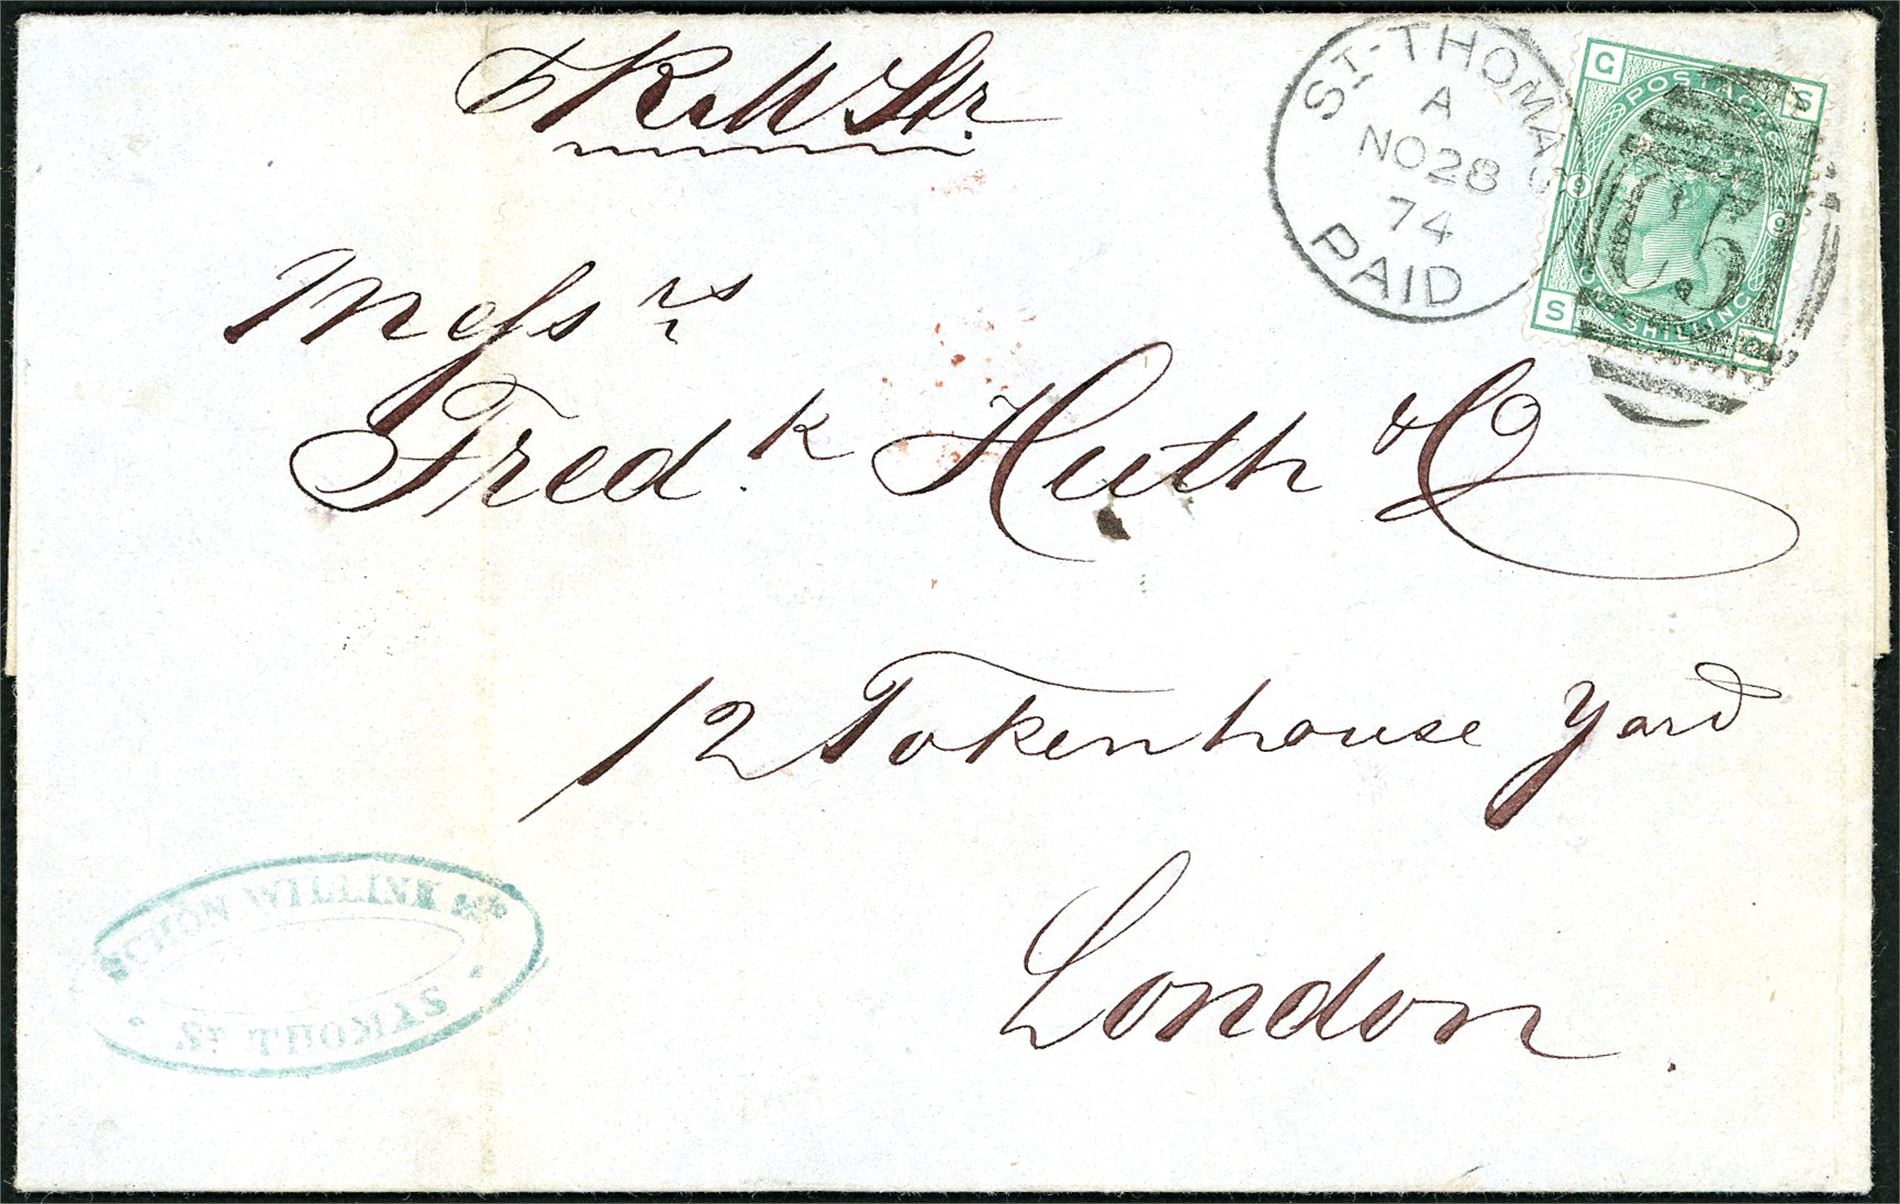 ℔ R M Str.
St. THOMAS
A
NO 28
74
PAID
G S
POSTAGE
C51
9 9
ONE SHILLING
S G
Messrs
Fredk. Huth & Co
12 Tokenhouse Yard
London.
WILLINK & Co
ST THOMAS